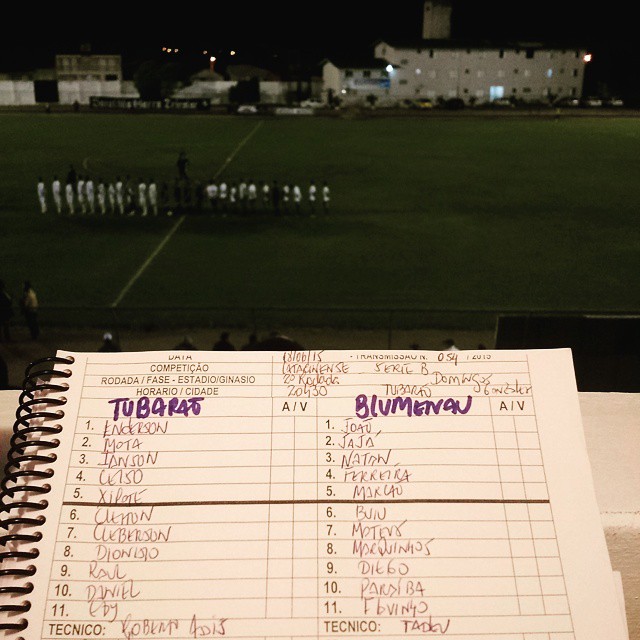 DATA 18/06/15 - TRANSMISSÃO N. 054 / 2015
COMPETIÇÃO CATARINENSE SERIE B
RODADA / FASE - ESTADIO/GINASIO 2ª Rodada DOMINGOS GONZALES
HORARIO / CIDADE 20H30 TUBARÃO
TUBARÃO A / V BLUMENAU A / V
1. ENDERSON 1. JOÃO
2. MOTA 2. JAJÁ
3. IANSON 3. NATAN
4. CELSO 4. FERREIRA
5. XIPOTE 5. MARCÃO
6. CLEITON 6. BUIU
7. CLEBERSON 7. MATEUS
8. DIONISIO 8. MARQUINHOS
9. RAUL 9. DIEGO
10. DANIEL 10. PARAÍBA
11. EDY 11.
TECNICO: ROBERTO ASSIS TECNICO: TADEU